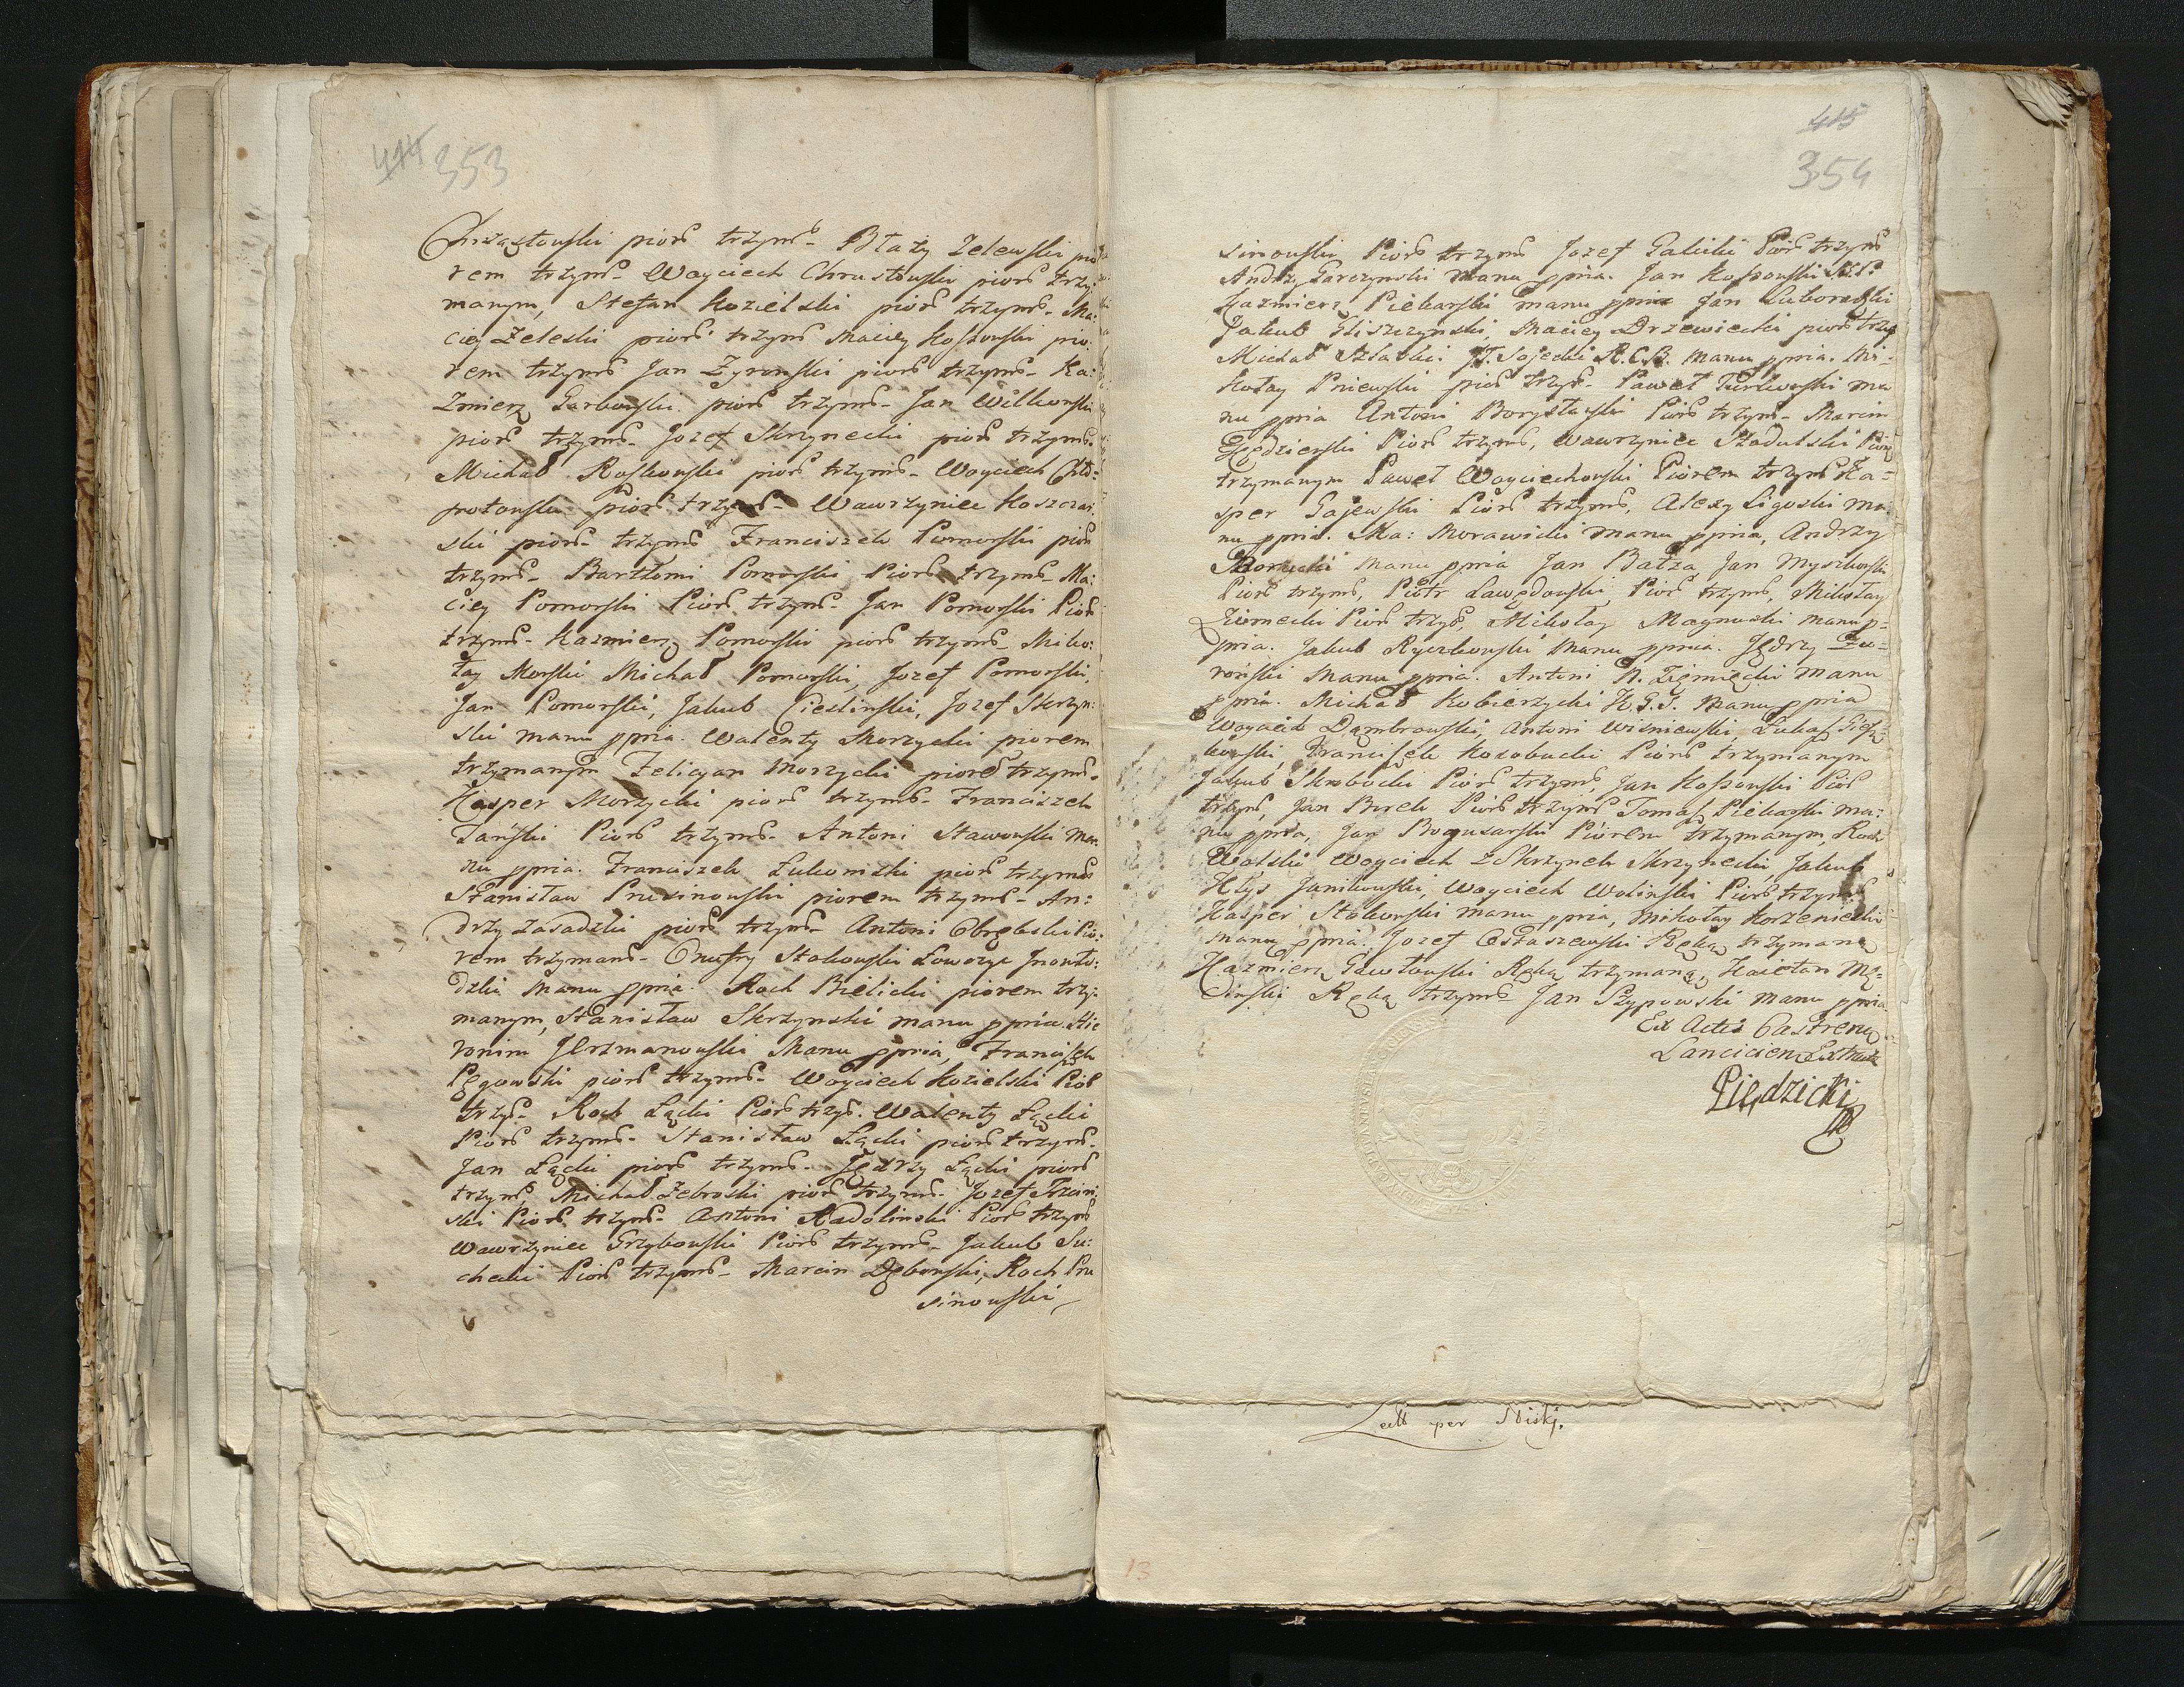 414 353
Chrząstowski piorẽ trzymẽ - Błaży Zelewski pió
rem trzymẽ - Woyciech Chrustowski piorẽ trzy:
manym, Stefan Kozielski piorẽ trzymẽ - Ma:
ciey Zeleski piorẽ trzymẽ Maciey Kossowski pio:
rem trzymẽ Jan Zyronski piorẽ trzymẽ - Ka:
Zmierz Garbowski piorẽ trzymẽ - Jan Wilkowski
piorẽ trzymẽ - Jozef Skrzynecki piorẽ trzymẽ
Michał Roskowski piorẽ trzymẽ - Woyciech Chło=
potowski piorẽ trzymẽ - Wawrzyniec Koszczań
ski piorẽ trzymẽ Franciszek Pomorski piorẽ
trzymẽ - Bartłomi Pomorski Piorẽ trzymẽ - Ma:
ciey Pomorski Piorẽ trzymẽ - Jan Pomorski Piorẽ
trzymẽ - Kazmierz Pomorski piorẽ trzymẽ - Miko:
łay Morski Michał Pomorski, Jozef Pomorski,
Jan Pomorski, Jakub Cieslinski, Jozef Skrzyn:
ski manu ppria. Walenty Morzycki piorem
trzymanym Felicyan Morzycki piorẽ trzymẽ -
Kasper Morzycki piorẽ trzymẽ - Franciszek
Tański Piorẽ trzymẽ - Antoni Stawowski Ma
nu ppria. Franciszek Łukomski piorẽ trzymẽ
Stanisław Prusinowski piorem trzymẽ - An:
drzy Zasadzki piorẽ trzymẽ - Antoni Obrębski Pio:
rem trzymanẽ - Onufry Stokowski Łowczyc Inowło:
dzki Manu ppria. Roch Bielicki piorem trzy:
manym, Stanisław Skrzynski manu ppria. Hie
ronim Jerzmanowski Manu ppria, Franciszek
Pęgowski piorẽ trzymẽ - Woyciech Kozielski Piorẽ
trzyẽ - Roch Łącki Piorẽ trzyẽ. Walenty Łącki
Piorẽ trzymẽ - Stanisław Łącki piorẽ trzymẽ -
Jan Łącki piorẽ trzymẽ - Jędrzy Łącki piorẽ
trzymẽ, Michał Zebroski piorẽ trzymẽ - Jozef Trzciń
ski Piorẽ trzymẽ - Antoni Radolinski Piorẽ trzymẽ
Wawrzyniec Grzybowski Piorẽ trzymẽ - Jakub Su:
checki Piorẽ trzymẽ - Marcin Dębowski, Roch Pru
sinowski
415
354
sinowski Piorẽ trzymẽ Jozef Galicki Piorẽ trzymẽ
Andrzy Garczynski Manu ppria. Jan Kossowski
Kazmierz Piekarski manu ppria Jan Luboradzki
Jakub Gliszczynski, Maciey Drzewiecki piorẽ trzy
Michał Szlaski J. Sojecki R.C.B. manu ppria. Mi-
kołay Pniewski piorẽ trzyẽ - Paweł Turkowski ma
nu ppria Antoni Borysławski Piorẽ trzymẽ - Marcin
Piorẽ trzymẽ, Wawrzyniec Stadulski Piorẽ
trzymanym Paweł Woyciechowski Piórem trzymẽ Ka=
sper Gajewski Piorẽ trzymẽ, Alexy Ligoski ma:
nu ppria. Ma: Morawicki manu ppria, Andrzy
manu ppria Jan Bałza, Jan Myszkowski
Piorẽ trzymẽ, Piotr Lawędowski Piorẽ trzymẽ, Mikołay
Ziemecki Piorẽ trzyẽ, Mikołay Magnuski manu p=
pria. Jakub Ryczkowski Manu ppria. Jędrzy Zu=
roński manu ppria. Antoni N. Ziemięcki manu
ppria. Michał Kobierzycki K.G.S. Manu ppria
Woyciech Dąmbrowski, Antoni Wiśniewski, Łukasz
kowski, Franciszek Kozobucki Piorẽ trzymanym
Jakub Skrobocki Piorẽ trzymẽ, Jan Kossowski Piorẽ
trzymẽ, Jan Birek Piorẽ trzymẽ Tomasz Piekarski ma:
nu ppria, Jan Bogusarski Piórem trzymanym, Roch
Walski, Woyciech z Skrzynek Skrzynecki, Jakub
Janikowski, Woyciech Wolinski Piorẽ trzymẽ
Kasper Stokowski manu ppria, Mikołay Korzenicki
manu ppria. Jozef Ostaszewski Ręką trzymaną
Kazmierz Gawłowski Ręką trzymaną, Kaietan Mę=
ciński Ręką trzymẽ Jan Szypowski manu ppria
Ex Actis Castren
Lanciciens Extract
Piędzicki
Lectt per
13